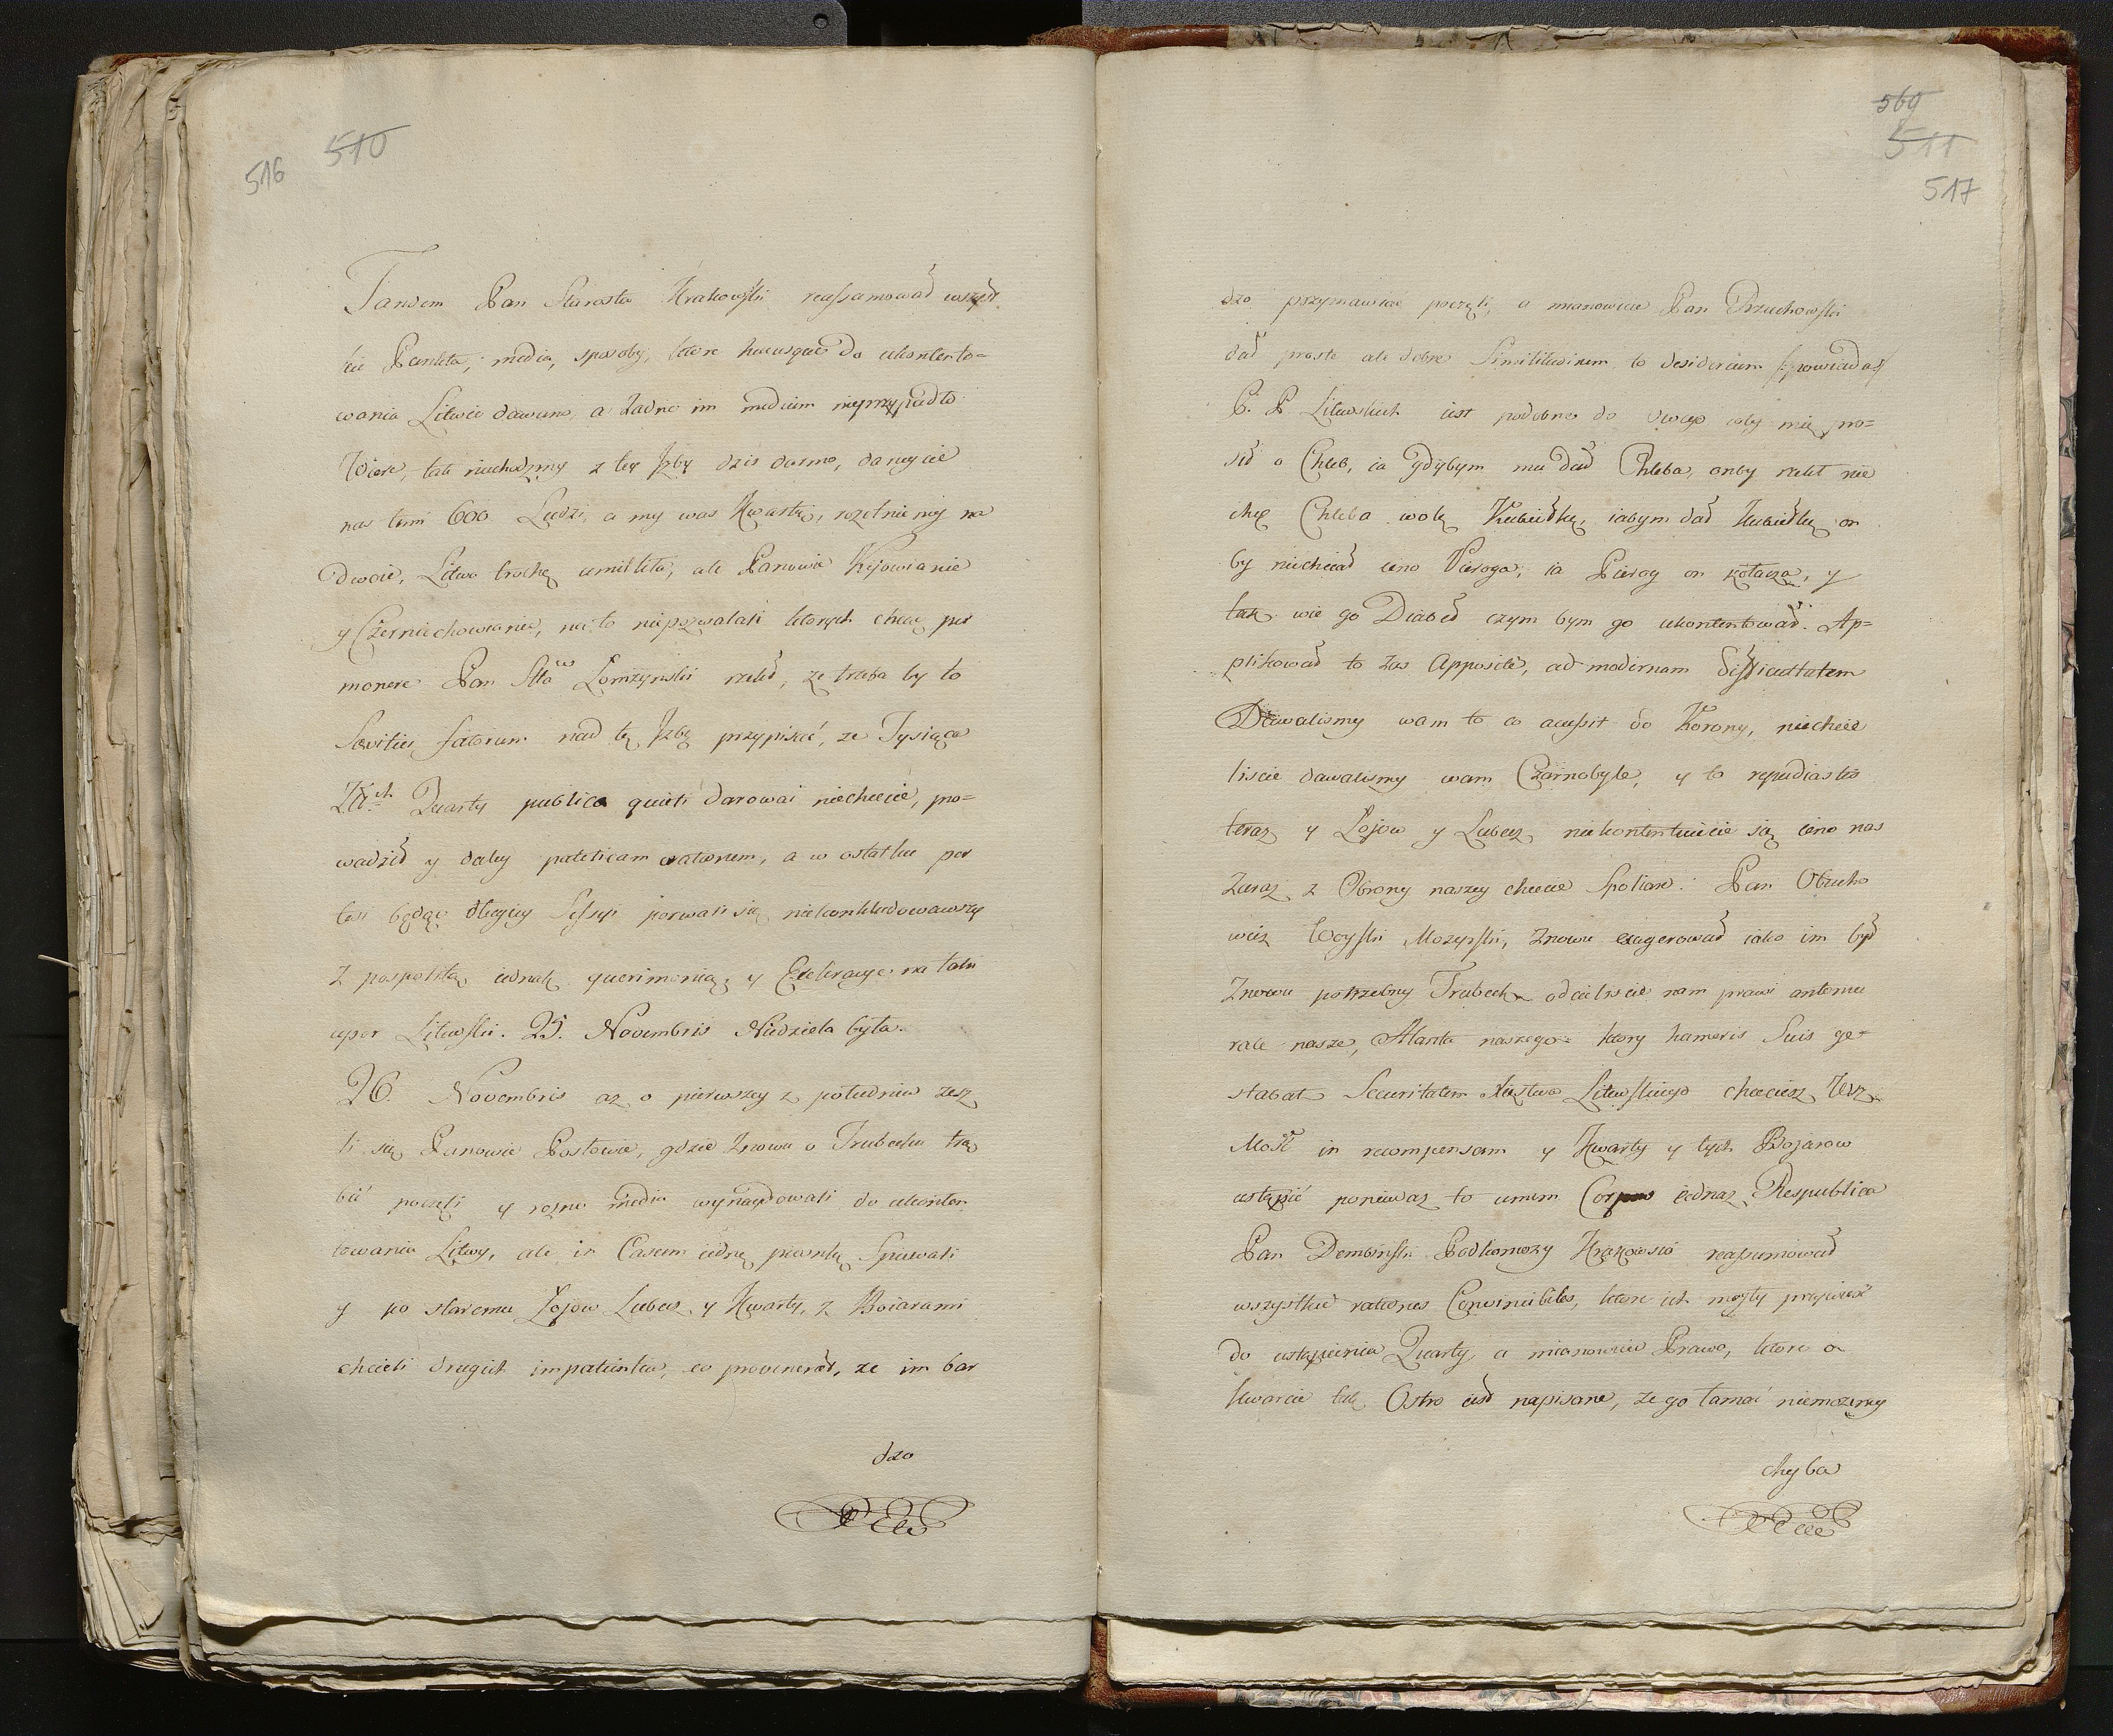 516 510
Tandem Pan Starosta Krakowski reassumował wszyst
kie Puncta, media, sposoby, ktore hucusque do ukontento=
wania Litwie dawano, a żadne im medium nieprzypadło
Wiere, tak niechodzmy z tey Jzby dzis darmo, daruycie
nas temi 600 Ludzi, a my was Kwartą, rozetniemy na
dwoie, Litwa trochę umilkła, ale Panowie Kijowianie
y Czerniechowianie, na to niepozwalali ktorych chcąc per
monere Pan Stta Łomzynski rzekł, ze trzeba by to
Sævitiei fatorum nad tę Jzbę przypisać, ze Tysiąca
Złch Quarty publicæ quieti darowai niechcecie, pro=
wadził y daley pateticam orationem, a w ostatku po
lesi będąc długiey Sessyi porwali się niekonkludowawszy
z pospolitą iednak querimonią, y Exekracye na taki
upor Litewski. 25. Novembris Niedziela była.
26. Novembris az o pierwszey z południa zesz
li się Panowie Posłowie, gdzie znowu o Trubecku trą
bić poczęli y rozne media wynaydowali do ukonten
towania Litwy, ale in Casum iednę piosnkę Spiewali
y po staremu Łojow Lubecz y Kwarty, z Boiarami
chcieli drugich impatientia, co provenerat, ze im bar
dzo
569
511
517
dzo przymawiać poczęli, a mianowicie Pan Drzuchowski
dał proste ale dobre Similitudinem to desiderium powiadas
P. P Litewskich iest podobne do owego coby mię pro=
sił o Chleb, ia gdybym mu dał Chleba, onby rzekł nie
chcę Chleba wolę Kukiełkę, iabym dał Kukiełkę on
by niechciał ieno Pieroga, ia Pierog on kołacza, y
tak wie go Diabeł czym bym go ukontentował. Ap=
plikował to zas Apposite, ad modernam difficultatem
Dawalismy wam to co acessit do Korony, niechcie
liscie dawalismy wam Czarnobyle, y to repudiastis
teraz y Łojow y Lubecz, niekontentuiecie się ieno nas
zaraz z Obrony naszey chcecie Spoliare. Pan Obucho
wicz Woyski Mozyrski, znowu exagerował iako im był
znowu potrzebny Trubeck odcieliscie nam prawi antemu
rale nasze, Atlanta naszego ktory humeris Suis ge=
stabat Securitatem Xięztwa Litewskiego chcecież tesz
Mość in recompensam y Kwarty y tych Bojarow
ustąpić poniewaz to unum Corpus iednaz Respublica
Pan Dembinski Podkomorzy Krakowski reassumował
wszystkie rationes Convincibiles, ktore ich mogły przywiesc
do ustąpienia Quarty, a mianowicie Prawo, ktore o
kwarcie tak Ostro iest napisane, ze go łamać niemozemy
chyba